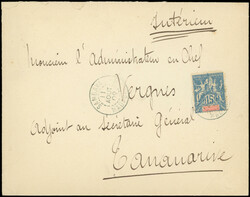 Intérieur
Monsieur l'Administrateur en Chef
Vergnes
Adjoint au Secrétaire Général
Tananarive
15